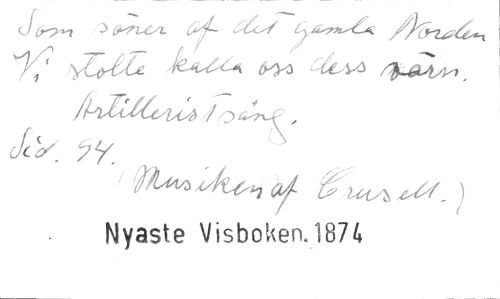 Som söner af det gamla Norden
Vi stolte kalla oss dess värn.
Artilleristsång.
Sid. 94.
(Musiken af Crusell.)
Nyaste Visboken. 1874